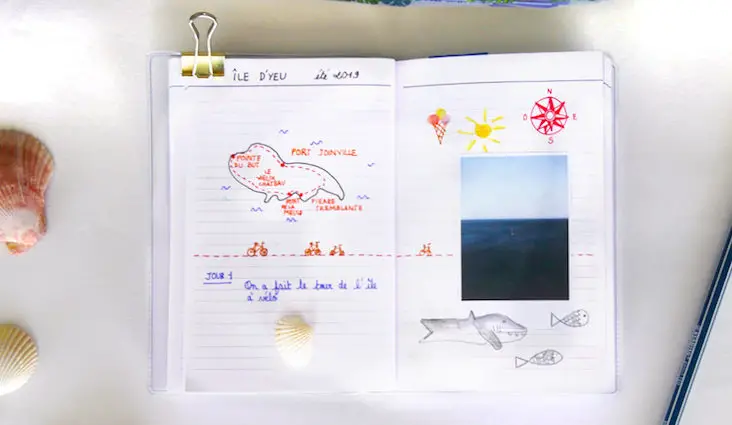 ÎLE D'YEU été 2019
POINTE
DU BUT
PORT JOINVILLE
LE
VIEUX
CHATEAU
PORT
DE LA
MEULE
PIERRE
TREMBLANTE
JOUR 1
On a fait le tour de l'île
à vélo
N
O E
S